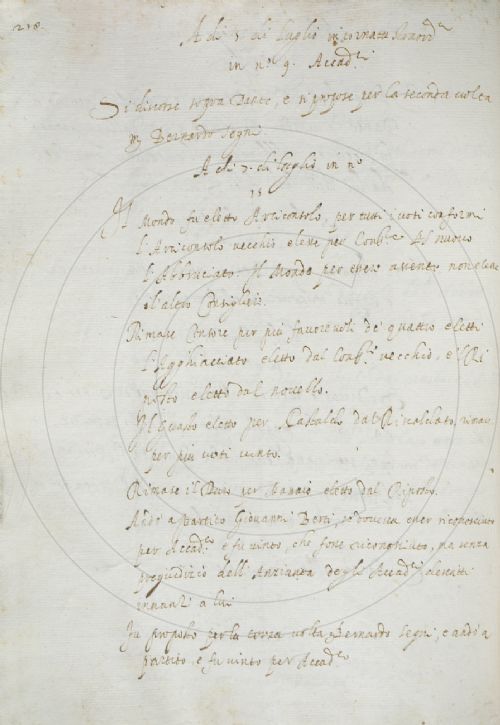 218.
A dì 5 di Luglio in
in n.º 9. Accad.ci
Si discorse sopra Dante, e si propose per la seconda volta
m. Bernardo Segni
A dì 7. di Luglio in n.º
15
Il Mondo fu eletto Arciconsolo, per tutti i voti conformi
L'Arciconsolo vecchio elesse per Cons.re il nuovo
l'Abbruciato. Il Mondo per essere assente non elesse
l'altro Consigliere.
Rimase Censore per più favorevoli de' quattro eletti
L'Agghiacciato eletto dal Cons.re vecchio, e il
eletto dal novello.
Il eletto per dal Rivalciato, rimase
per più voti vinto.
Rimase il per eletto dal
Andò a partito Giovanni Berti, se doveva esser riconosciuto
per Accad.co e fu vinto, che fosse riconosciuto, ma senza
pregiudizio dell'Anzianità degli Accad.ci descritti
innanzi a lui
Fu proposto per la terza volta Bernardo Segni, e andò a
partito, e fu vinto per Accad.co